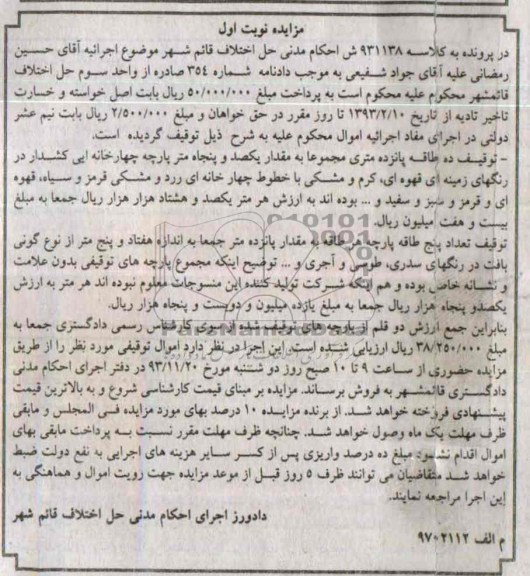 مزایده نوبت اول
در پرونده به کلاسه ۹۳۱۱۳۸ ش احکام مدنی حل اختلاف قائم شهر موضوع اجرائیه آقای حسین
رمضانی علیه آقای جواد شفیعی به موجب دادنامه شماره ۳۵٤ صادره از واحد سوم حل اختلاف
قائمشهر محکوم علیه محکوم است به پرداخت مبلغ ۵۰/۰۰۰/۰۰۰ ریال بابت اصل خواسته و خسارت
تاخیر تادیه از تاریخ ۱۳۹۳/۲/۱۰ تا روز مقرر در حق خواهان و مبلغ ۲/۵۰۰/۰۰۰ ریال بابت نیم عشر
دولتی در اجرای مفاد اجرائیه اموال محکوم علیه به شرح ذیل توقیف گردیده است.
- توقیف ده طاقه پانزده متری مجموعا به مقدار یکصد و پنجاه متر پارچه چهارخانه ایی کشدار در
رنگهای زمینه ای قهوه ای، کرم و مشکی با خطوط چهار خانه ای زرد و مشکی قرمز و سیاه، قهوه
ای و قرمز و سبز و سفید و ... بوده اند به ارزش هر متر یکصد و هشتاد هزار هزار ریال جمعا به مبلغ
بیست و هفت میلیون ریال.
توقیف تعداد پنج طاقه پارچه هر طاقه به مقدار پانزده متر جمعا به اندازه هفتاد و پنج متر از نوع گونی
بافت در رنگهای سدری، طوسی و آجری و ... توضیح اینکه مجموع پارچه های توقیفی بدون علامت
و نشانه خاص بوده و هم اینکه شرکت تولید کننده این منسوجات معلوم نبوده اند هر متر به ارزش
یکصدو پنجاه هزار ریال جمعا به مبلغ یازده میلیون و دویست و پنجاه هزار ریال.
بنابراین جمع ارزش دو قلم از پارچه های توقیف شده از سوی کارشناس رسمی دادگستری جمعا به
مبلغ ۳۸/۲۵۰/۰۰۰ ریال ارزیابی شده است. این اجرا در نظر دارد اموال توقیفی مورد نظر را از طریق
مزایده حضوری از ساعت ۹ تا ۱۰ صبح روز دو شنبه مورخ ۹۳/۱۱/۲۰ در دفتر اجرای احکام مدنی
دادگستری قائمشهر به فروش برساند. مزایده بر مبنای قیمت کارشناسی شروع و به بالاترین قیمت
پیشنهادی فروخته خواهد شد. از برنده مزایده ۱۰ درصد بهای مورد مزایده فی المجلس و مابقی
ظرف مهلت یک ماه وصول خواهد شد. چنانچه ظرف مهلت مقرر نسبت به پرداخت مابقی بهای
اموال اقدام نشود مبلغ ده درصد واریزی پس از کسر سایر هزینه های اجرایی به نفع دولت ضبط
خواهد شد متقاضیان می توانند ظرف ۵ روز قبل از موعد مزایده جهت رویت اموال و هماهنگی به
این اجرا مراجعه نمایند.
دادورز اجرای احکام مدنی حل اختلاف قائم شهر
م الف ۹۷۰۲۱۱۲